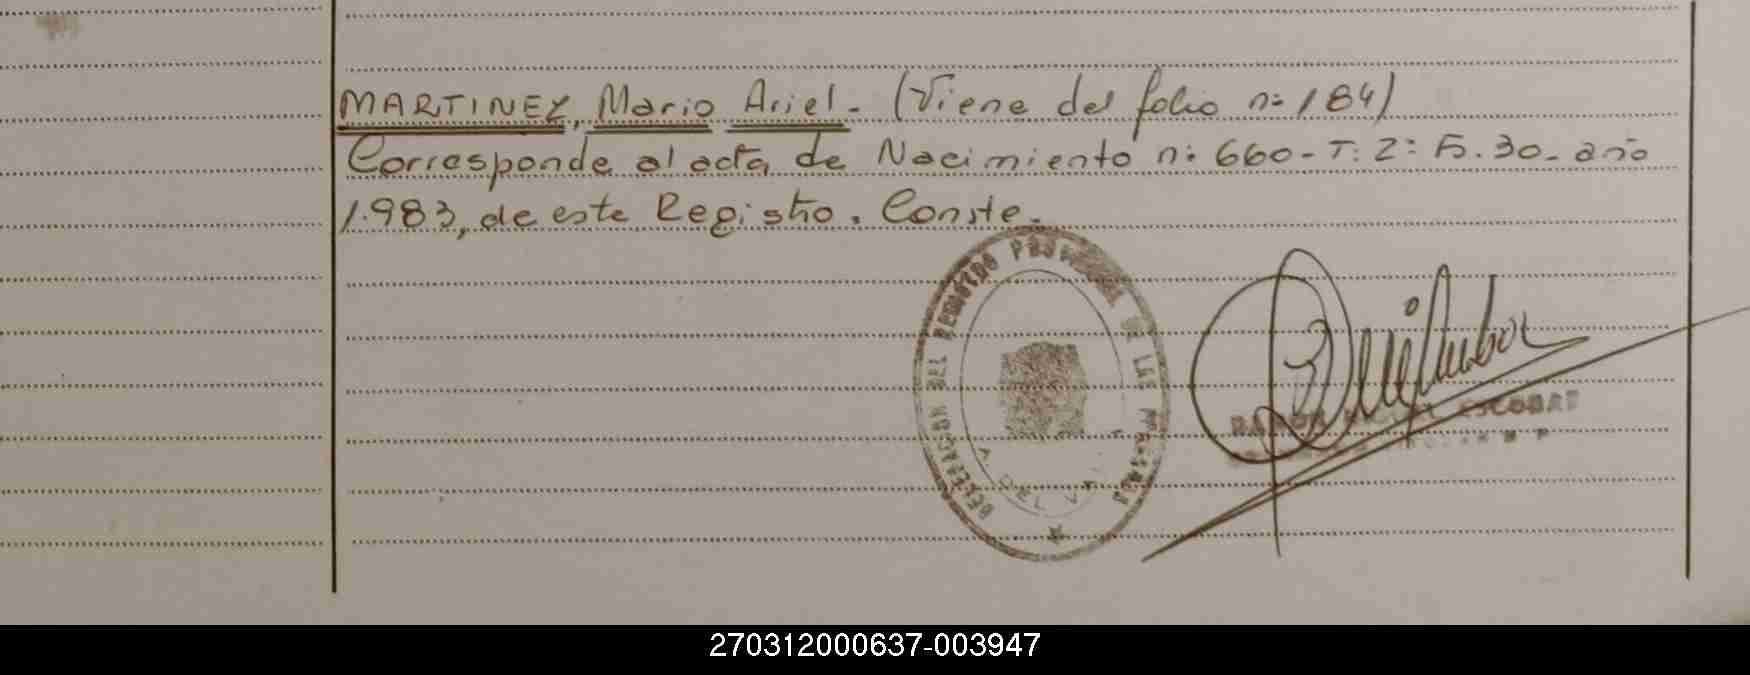 MARTINEZ, Mario Ariel. (Viene del folio n: 184)
Corresponde al acta de Nacimiento n: 660 - T: 2: F. 30. año
1.983, de este Registro. Conste.
DELEGACION DEL REGISTRO PROVINCIAL DE LAS PERSONAS
ESCOBAR
270312000637-003947